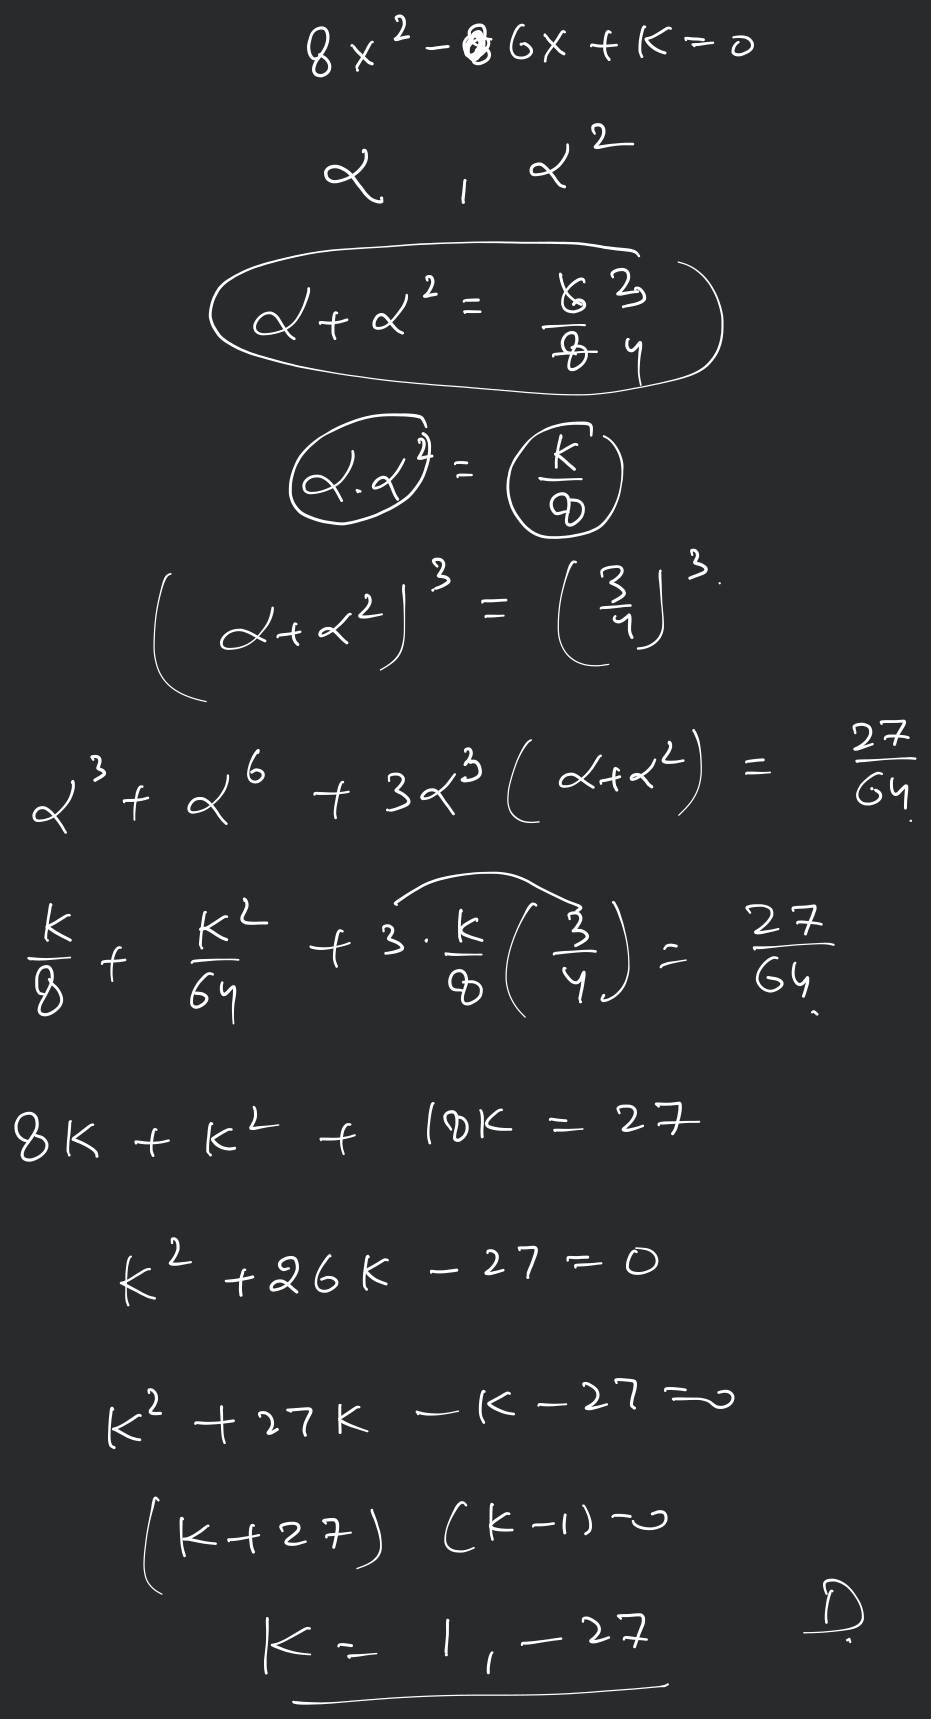 8x² - 6x + K = 0
α , α²
α + α² = 6/8 3/4
α.α² = k/8
(α+α²)³ = (3/4)³.
α³ + α⁶ + 3α³ (α+α²) = 27/64.
k/8 + k²/64 + 3. k/8 (3/4) = 27/64.
8K + K² + 18K = 27
K² + 26K - 27 = 0
K² + 27K - K - 27 = 0
(K+27) (K-1) = 0
K = 1, -27 D.